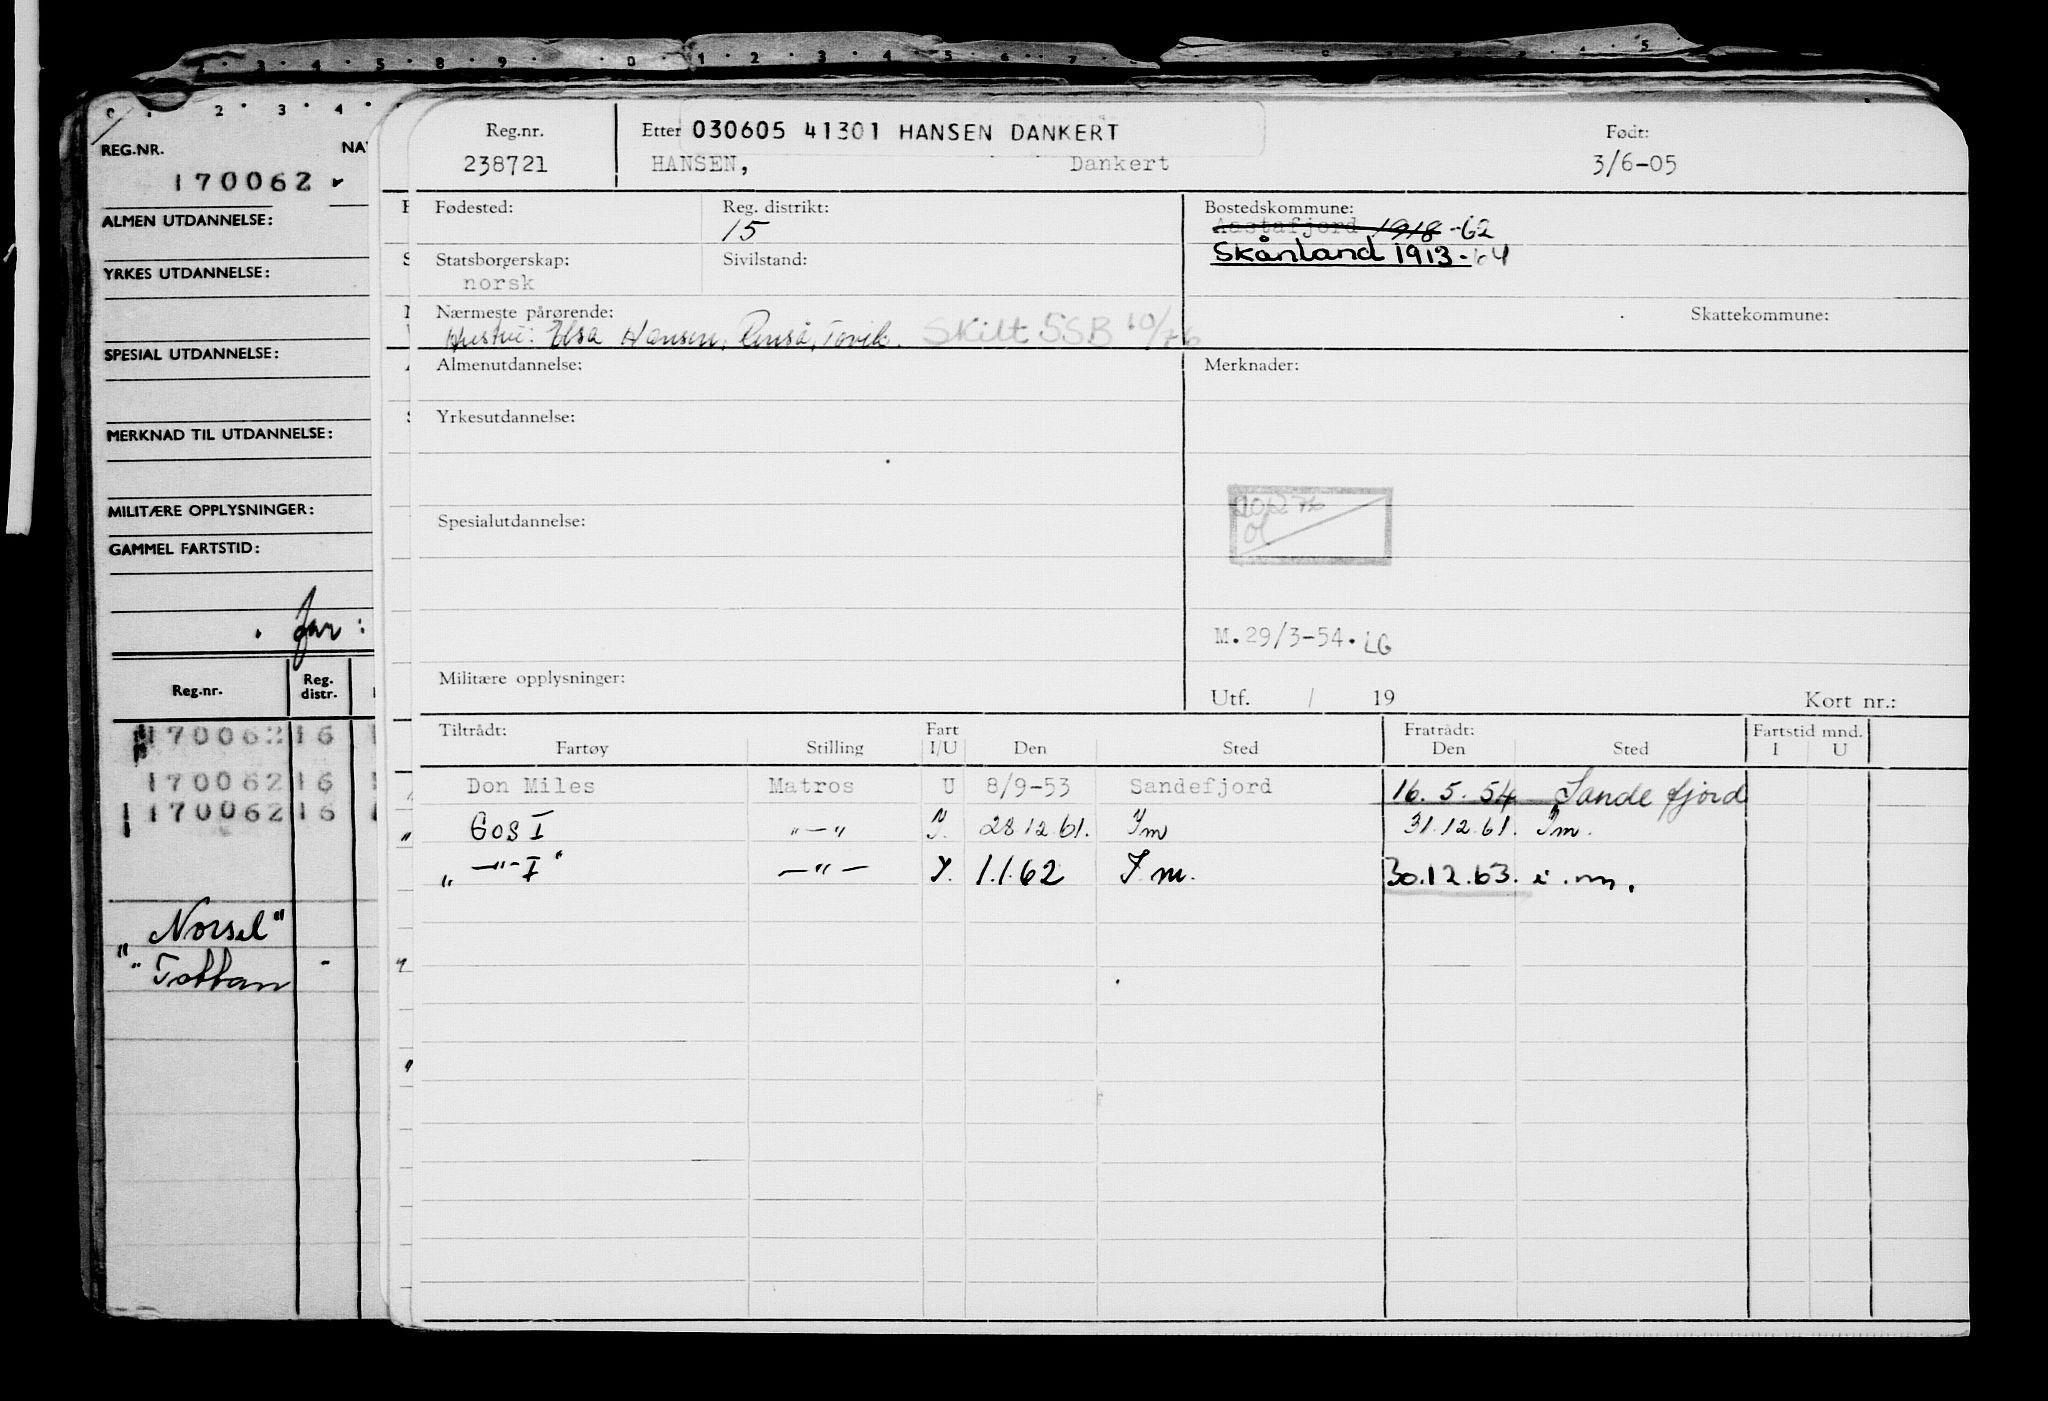 2 · 3 · 4 · 5 8 · 9 · 0 · 1 · 2 · 3 · 4 · 5 · 6 · 7 ·
0 1 2 · 3 · 4 ·
REG.NR. NA
170062
ALMEN UTDANNELSE:
YRKES UTDANNELSE:
SPESIAL UTDANNELSE:
MERKNAD TIL UTDANNELSE:
MILITÆRE OPPLYSNINGER:
GAMMEL FARTSTID:
far:
Reg.nr. Reg. distr.
170062 16
170062 16
170062 16
"Norsel"
"Tottan -
Reg.nr. Etter 030605 41301 HANSEN DANKERT Født:
238721 HANSEN, Dankert 3/6-05
Fødested: Reg. distrikt: Bostedskommune:
15 1918-62
Skånland 1913-64
Statsborgerskap: Sivilstand:
norsk
Nærmeste pårørende: Skattekommune:
Hustru: Elsa Hansen, Renså, Tovik. Skilt SSB 10/76
Almenutdannelse: Merknader:
Yrkesutdannelse:
Spesialutdannelse:
M.29/3-54. LG
Militære opplysninger:
Utf. / 19 Kort nr.:
Tiltrådt: Fart Fratrådt: Fartstid mnd.
Fartøy Stilling I/U Den Sted Den Sted I U
Don Miles Matros U 8/9-53 Sandefjord 16.5.54 Sandefjord
Gos I "—" 28.12.61. Im 31.12.61. Im.
" —"- I" —"— I. 1.1.62 I m. 30.12.63. i.m.